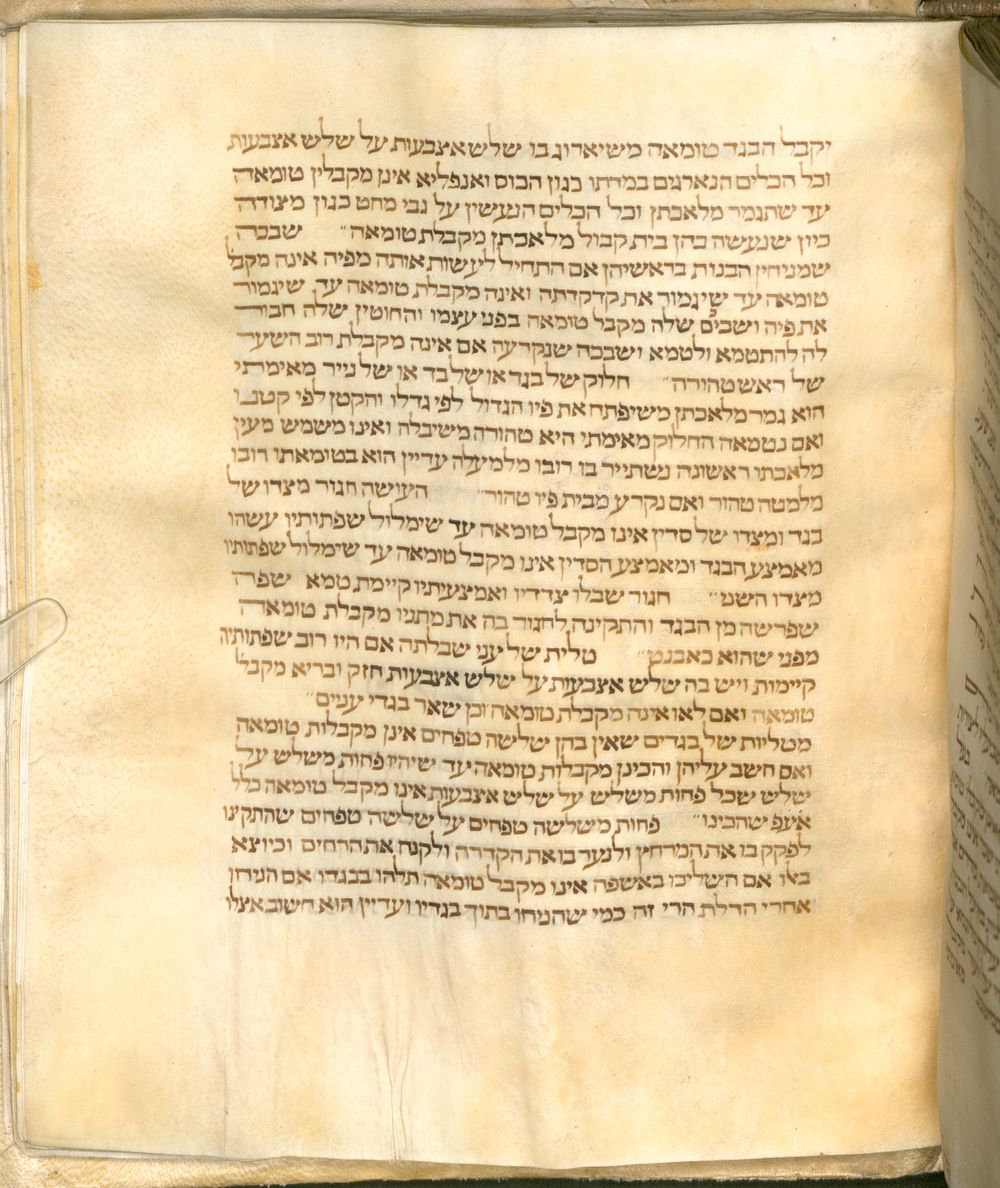 יקבל הבגד טומאה משיארוג בו שלש אצבעות על שלש אצבעות
וכל הכלים הנארגים במדתו כגון הכוס ואנפליא אינן מקבלין טומאה
עד שתגמר מלאכתן וכל הכלים הנעשין על גבי מחט כגון מצודה
כיון שנעשה בהן בית קבול מלאכתן מקבלת טומאה״ שבכה
שמניחין הבנות בראשיהן אם התחיל לעשות אותה מפיה אינה מקבל
טומאה עד שיגמור את קדקדתה ואינה מקבלת טומאה עד שיגמור
את פיה ושביס שלה מקבל טומאה בפני עצמו והחוטין שלה חבור
לה להתטמא ולטמא ושבכה שנקרעה אם אינה מקבלת רוב השער
של ראש טהורה״ חלוק של בגד או של בד או של נייר מאימתי
הוא גמר מלאכתן משיפתח את פיו הגדול לפי גדלו והקטן לפי קטנו
ואם נטמאה החלוק מאימתי היא טהורה משיבלה ואינו משמש מעין
מלאכתו ראשונה נשתייר בו רובו מלמעלה עדיין הוא בטומאתו רובו
מלמטה טהור ואם נקרע מבית פיו טהור״ העושה חגור מצדו של
בגד ומצדו של סדין אינו מקבל טומאה עד שימלול שפתותיו עשהו
מאמצע הבגד ומאמצע הסדין אינו מקבל טומאה עד שימלול שפתותיו
מצדו השני״ חגור שבלו צדדיו ואמצעיתיו קיימת טמא שפה
שפרשה מן הבגד והתקינה לחגור בה את מתניו מקבלת טומאה
מפני שהוא כאבנט״ טלית של עני שבלתה אם היו רוב שפתותיה
קיימות ויש בה שלש אצבעות על שלש אצבעות חזק ובריא מקבל
טומאה ואם לאו אינה מקבלת טומאה וכן שאר בגדי עניים״
מטליות של בגדים שאין בהן שלשה טפחים אינן מקבלות טומאה
ואם חשב עליהן והכינן מקבלות טומאה עד שיהיו פחות משלש על
שלש שכל פחות משלש על שלש אצבעות אינו מקבל טומאה כלל
אעפ שהכינו״ פחות משלשה טפחים על שלשה טפחים שהתקינו
לפקק בו את המרחץ ולנער בו את הקדרה ולקנח את הרחים וכיוצא
בלו אם השליכו באשפה אינו מקבל טומאה תלהו בבגדו אם הניחן
אחרי הדלת הרי זה כמי שהניחו בתוך בגדיו ועדיין הוא חשוב אצלו